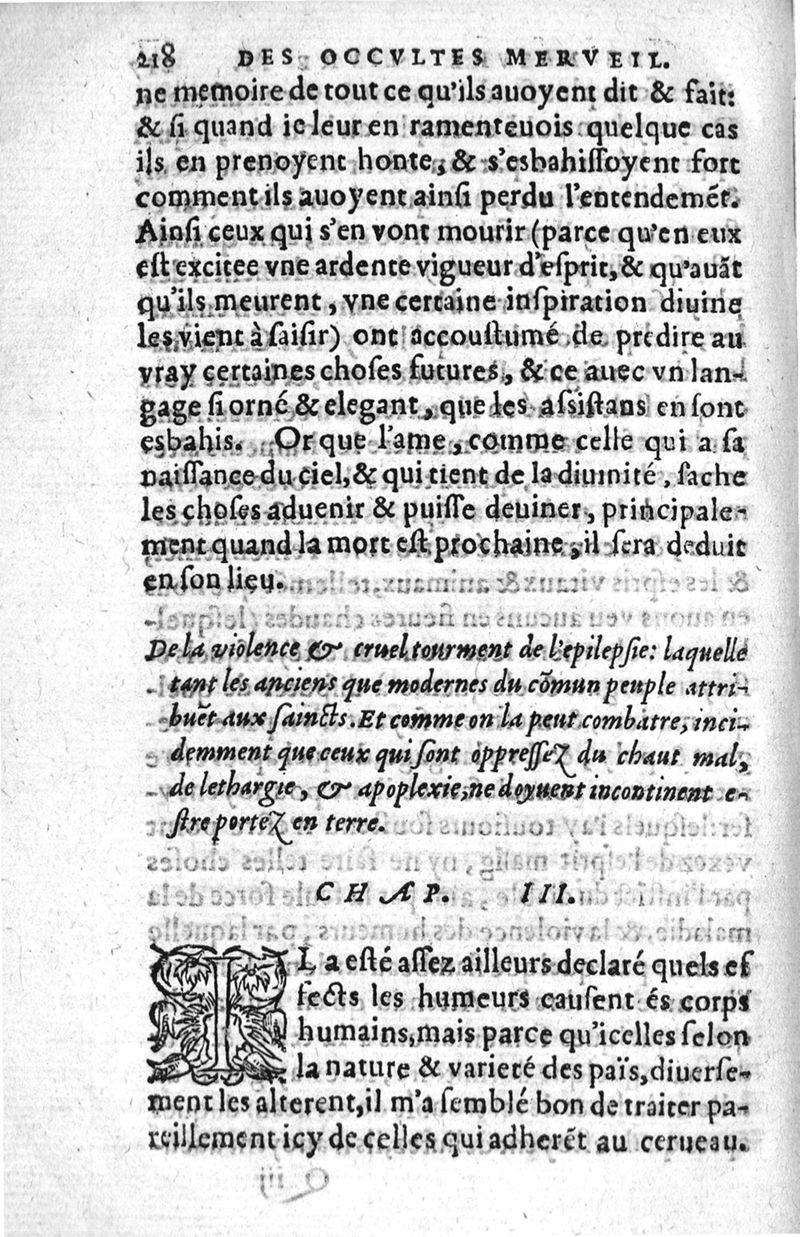 218 DES OCCVLTES MERVEIL.
ne memoire de tout ce qu'ils auoyent dit & fait:
& ſi quand ie leur en ramenteuois quelque cas
ils en prenoyent honte, & s'esbahiſſoyent fort
comment ils auoyent ainſi perdu l'entendemẽt.
Ainſi ceux qui s'en vont mourir (parce qu'en eux
eſt excitee vne ardente vigueur d'eſprit, & qu'auãt
qu'ils meurent, vne certaine inſpiration diuine
les vient à ſaiſir) ont accouſtumé de predire au
vray certaines choſes futures, & ce auec vn lan-
gage ſi orné & elegant, que les aſſiſtans en ſont
esbahis. Or que l'ame, comme celle qui a ſa
naiſſance du ciel, & qui tient de la diuinité, ſache
les choſes aduenir & puiſſe deuiner, principale-
ment quand la mort eſt prochaine, il ſera deduit
en ſon lieu.
De la violence & cruel tourment de l'epilepſie: laquelle
tant les anciens que modernes du cõmun peuple attri-
buẽt aux ſaincts. Et comme on la peut combatre, inci-
demment que ceux qui ſont oppreſſez du chaut mal,
de lethargie, & apoplexie, ne doyuent incontinent e-
ſtre portez en terre.
CHAP. III.
IL a eſté aſſez ailleurs declaré quels ef
fects les humeurs cauſent és corps
humains, mais parce qu'icelles ſelon
la nature & varieté des païs, diuerſe-
ment les alterent, il m'a ſemblé bon de traiter pa-
reillement icy de celles qui adherẽt au cerueau.